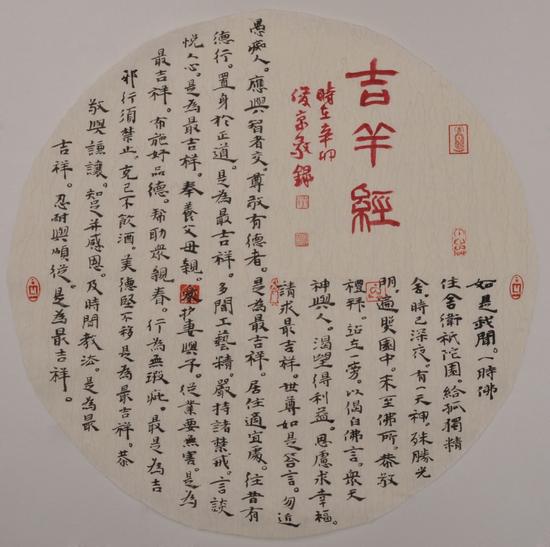 吉羊經
時在辛卯
俊京敬錄
如是我聞。一時佛
住舍衛祇陀園。給孤獨精
舍時已深夜。有一天神。殊勝光
明。遍照園中。來至佛所。恭敬
禮拜。站立一旁。以偈白佛言。眾天
神與人。渴望得利益。思慮求幸福。
請求最吉祥。世尊如是答言。勿近
愚痴人。應與智者交。尊敬有德者。是為最吉祥。居住適宜處。往昔有
德行。置身於正道。是為最吉祥。多聞工藝精。嚴持諸禁戒。言談
悅人心。是為最吉祥。奉養父母親。愛护妻與子。從業要無害。是為
最吉祥。布施好品德。幫助眾親眷。行為無瑕疵。最是為吉
邪行須禁止。克己不飲酒。美德堅不移。是為最吉祥。恭
敬與謙讓。知足并感恩。及時聞教法。是為最
吉祥。忍耐與順從。是為最吉祥。